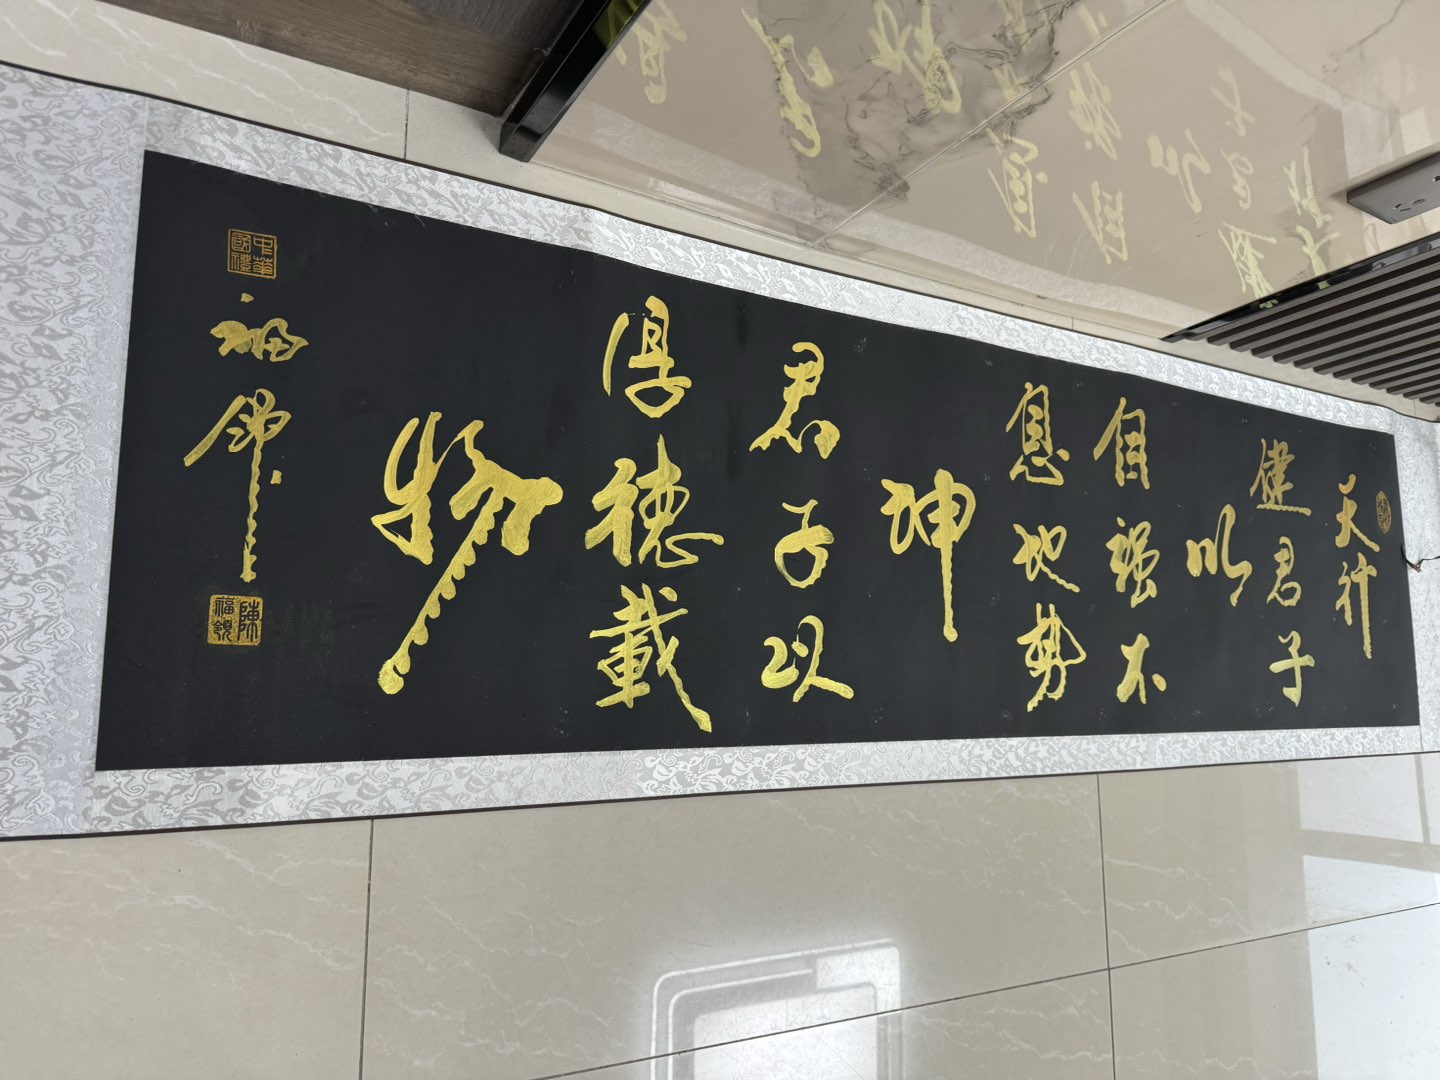 天行
健君子
以
自强不
息地势
坤
君子以
厚德載
物
中華國禮
福領
陳福領